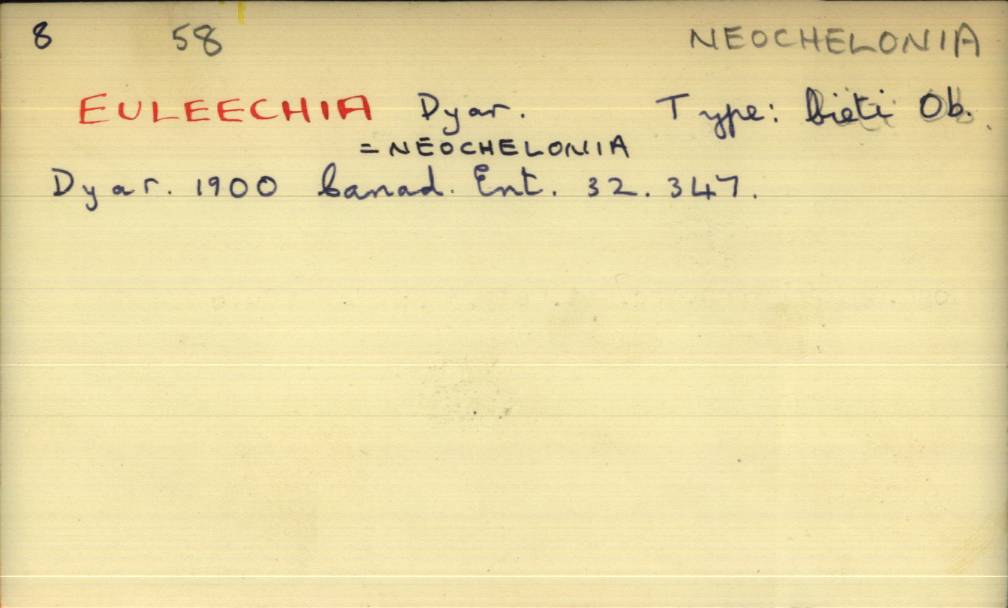 8 58 NEOCHELONIA
EULEECHIA Dyar. Type: bieti Ob.
= NEOCHELONIA
Dyar. 1900 Canad. Ent. 32. 347.